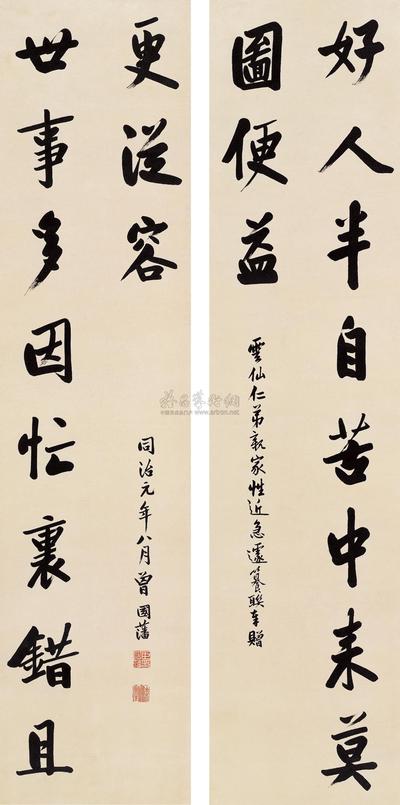 好人半自苦中來莫
圖便益
雲仙仁弟親家性近急遽纂聯奉贈
世事多因忙裏錯且
更從容
同治元年八月曾國藩
www.artron.net